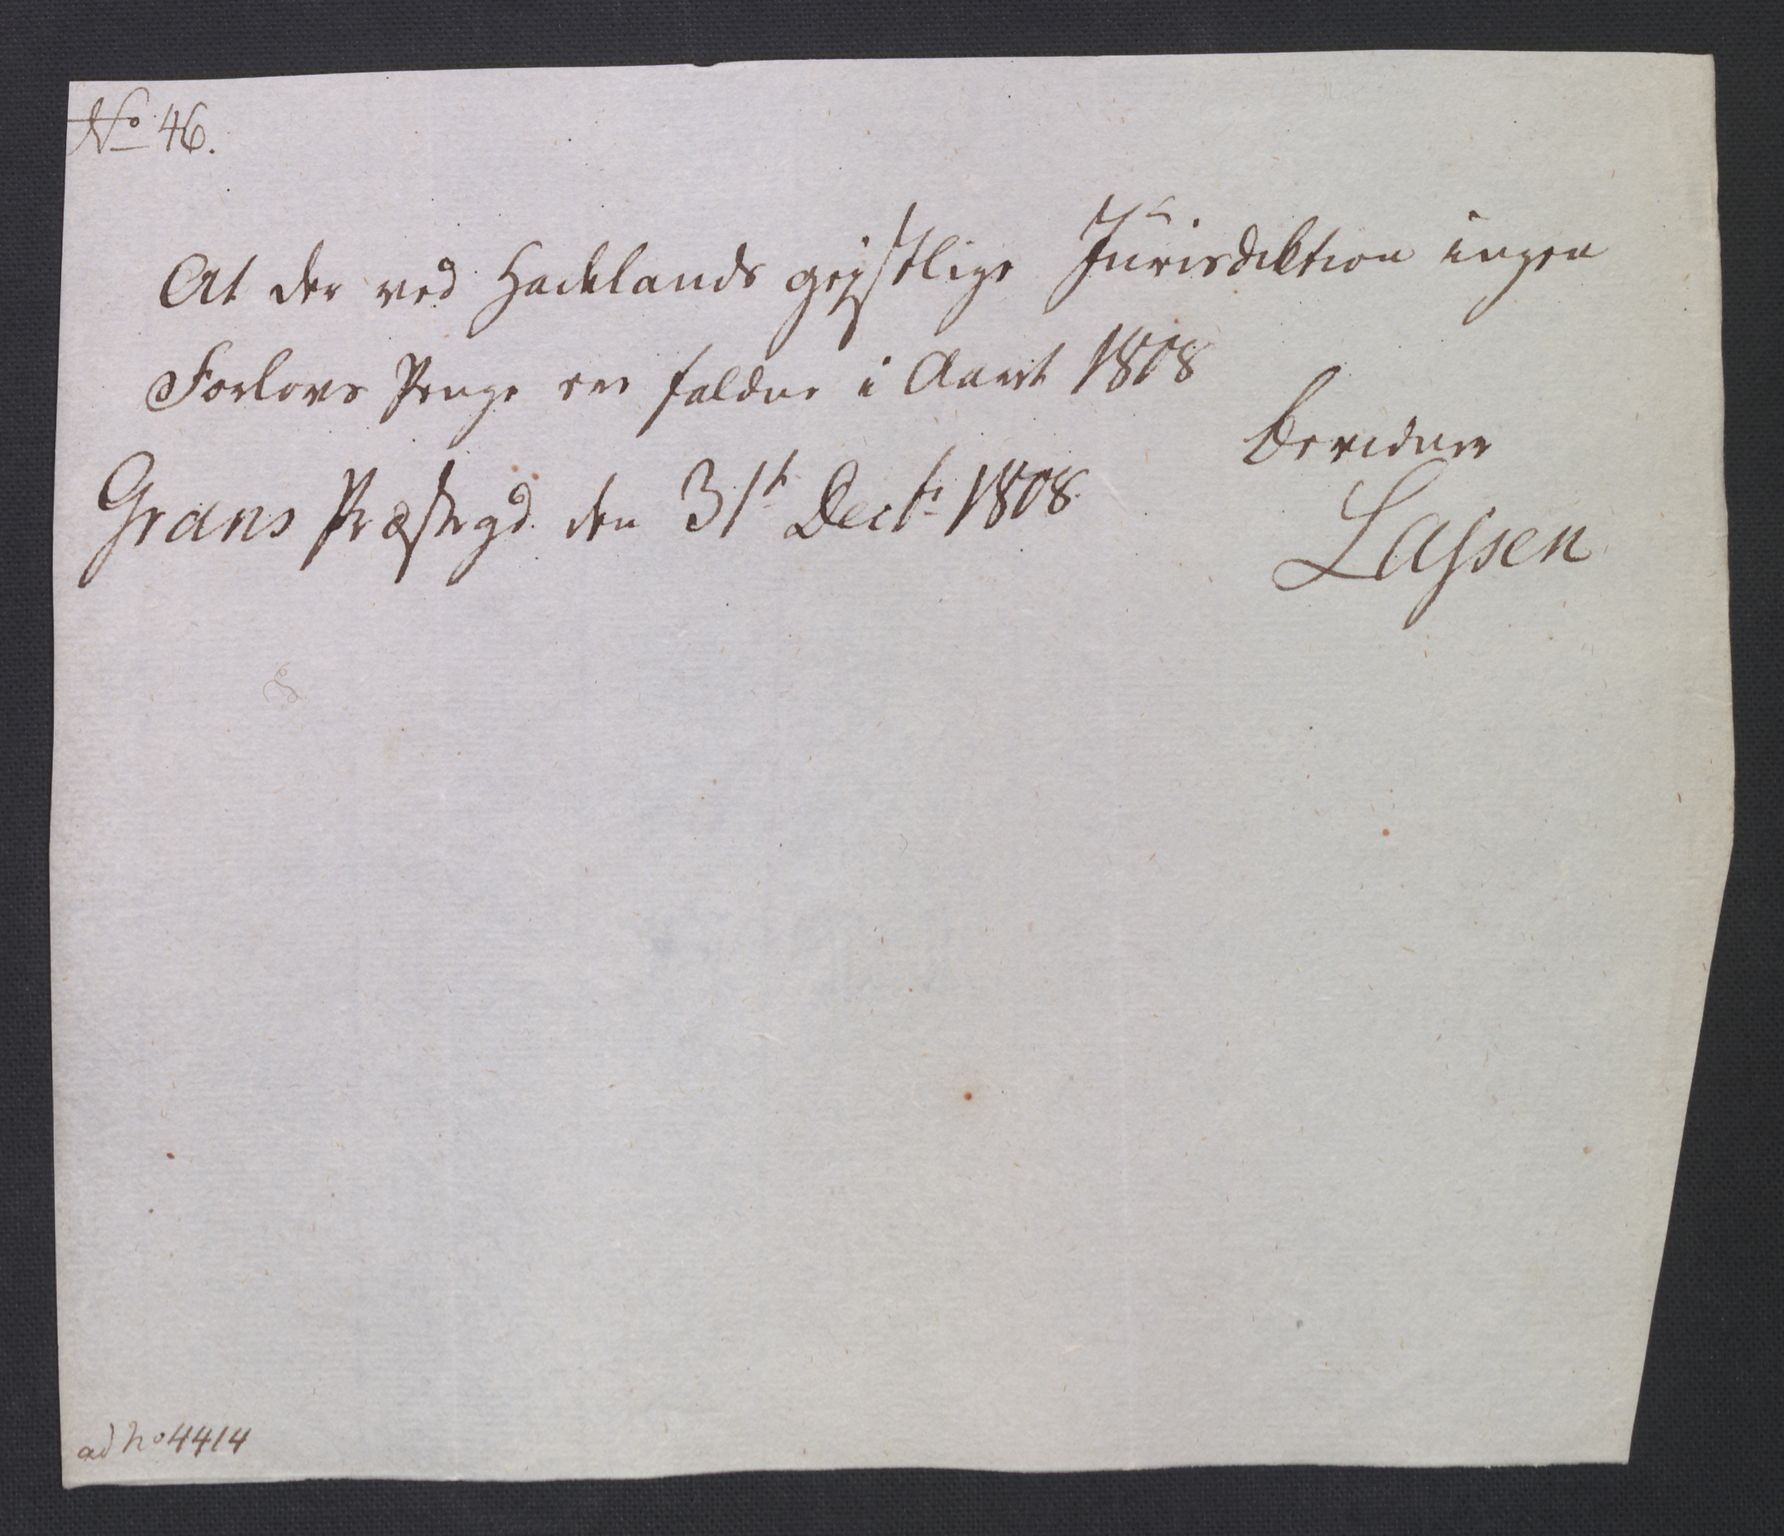 No 46.
At der ved Hadelands gejstlige Jurisdiktion ingen
Forlovs Penge ere faldne i Aaret 1808
bevidner
Grans Præstegd. den 31t Decbr 1808.
Lassen
ad No 4414